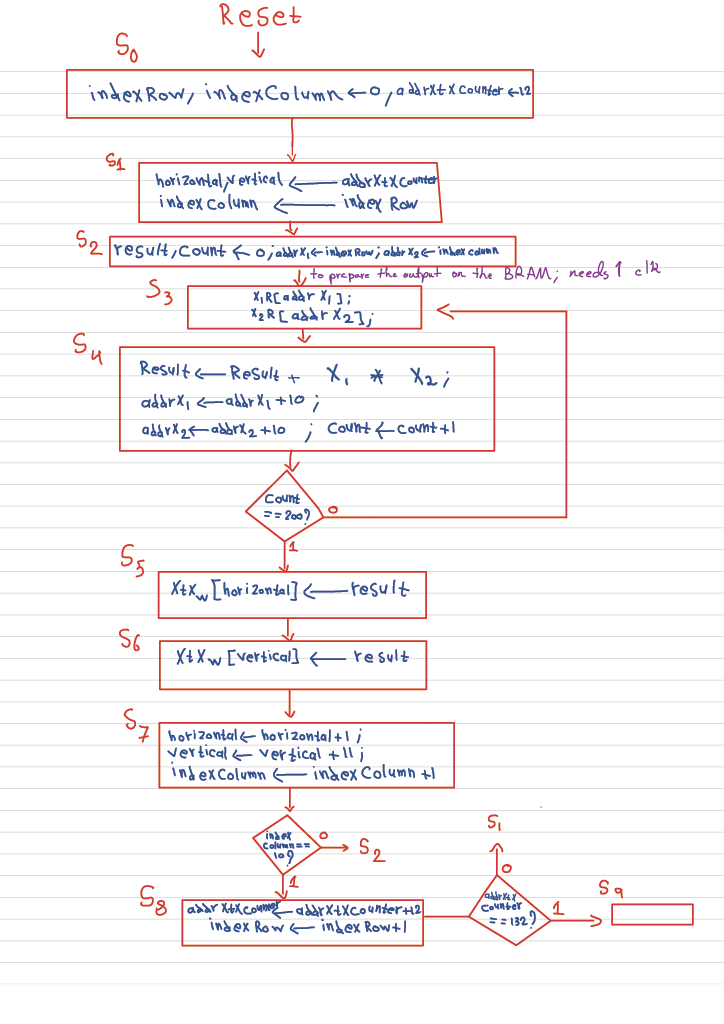 Reset
S0
indexRow, indexColumn ← 0, addrXtXCounter ← 12
S1
horizontal, vertical ← addrXtXCounter
indexColumn ← indexRow
S2
result, Count ← 0; addrX1 ← indexRow; addrX2 ← indexcolumn
to prepare the output on the BRAM; needs 1 clk
S3
X1R[addrX1];
X2R[addrX2];
S4
Result ← Result + X1 * X2;
addrX1 ← addrX1 + 10;
addrX2 ← addrX2 + 10; Count ← count+1
Count
==200?
0
1
S5
XtXw[horizontal] ← result
S6
XtXw[vertical] ← result
S7
horizontal ← horizontal+1;
vertical ← vertical +11;
indexColumn ← indexColumn +1
index
Column==
10?
0
S2
1
S8
addrXtXCounter ← addrXtXCounter+12
indexRow ← indexRow+1
S1
0
addrXtX
Counter
==132?
1
S9